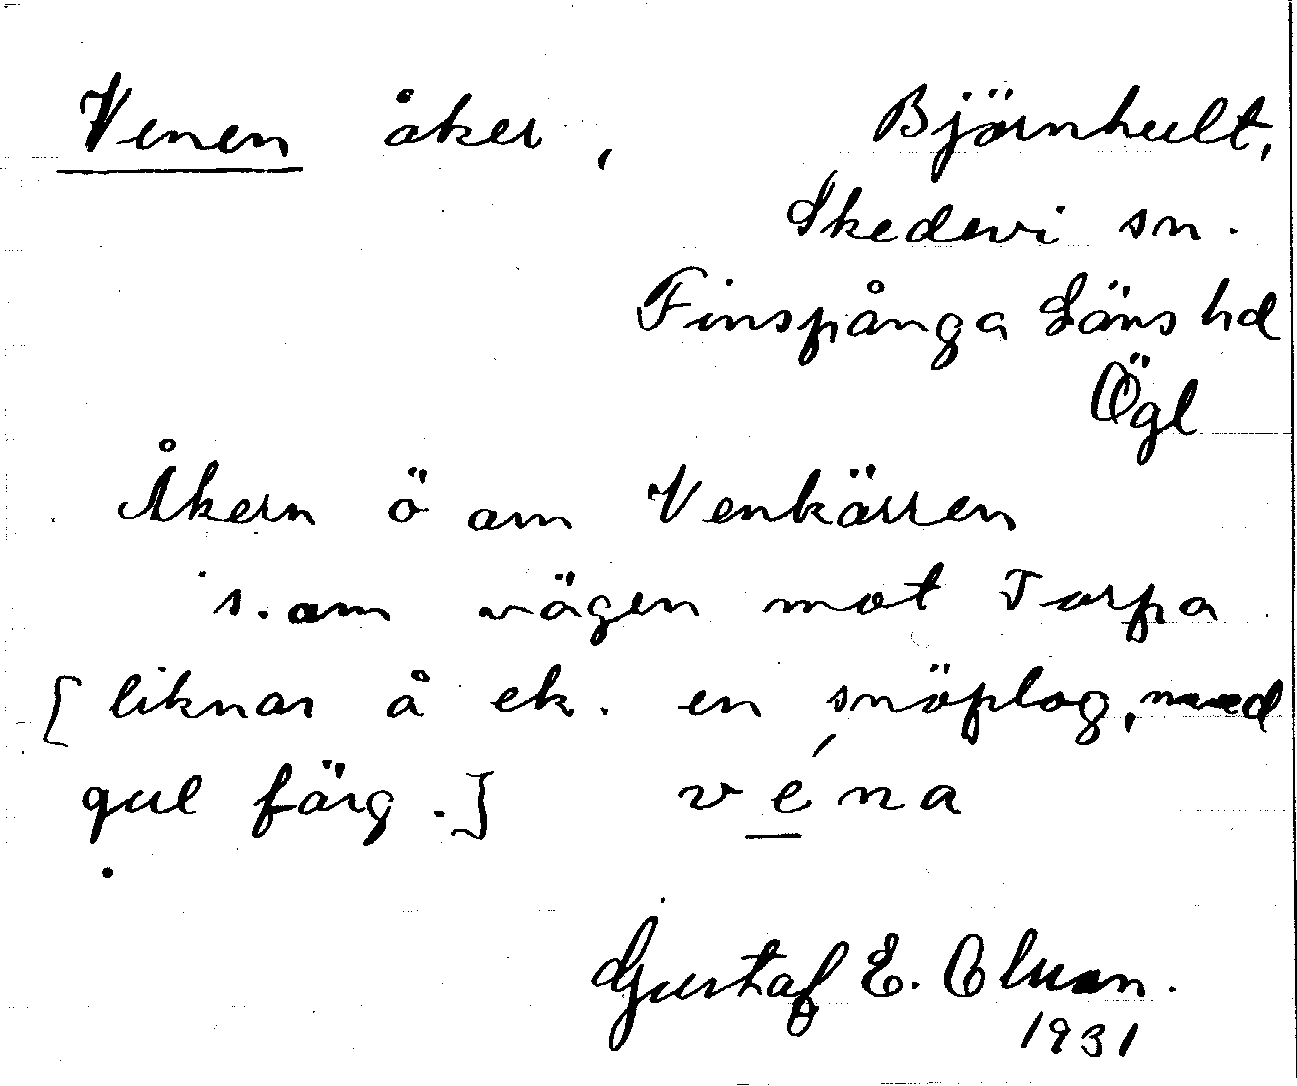 Venen åker, Björnhult,
Skedevi sn.
Finspånga Läns hd
Ögl
Åkern ö om Venkärren
s. om vägen mot Torpa
[liknar å ek. en snöplog, med
gul färg.] véna
Gustaf E. Olsson.
1931